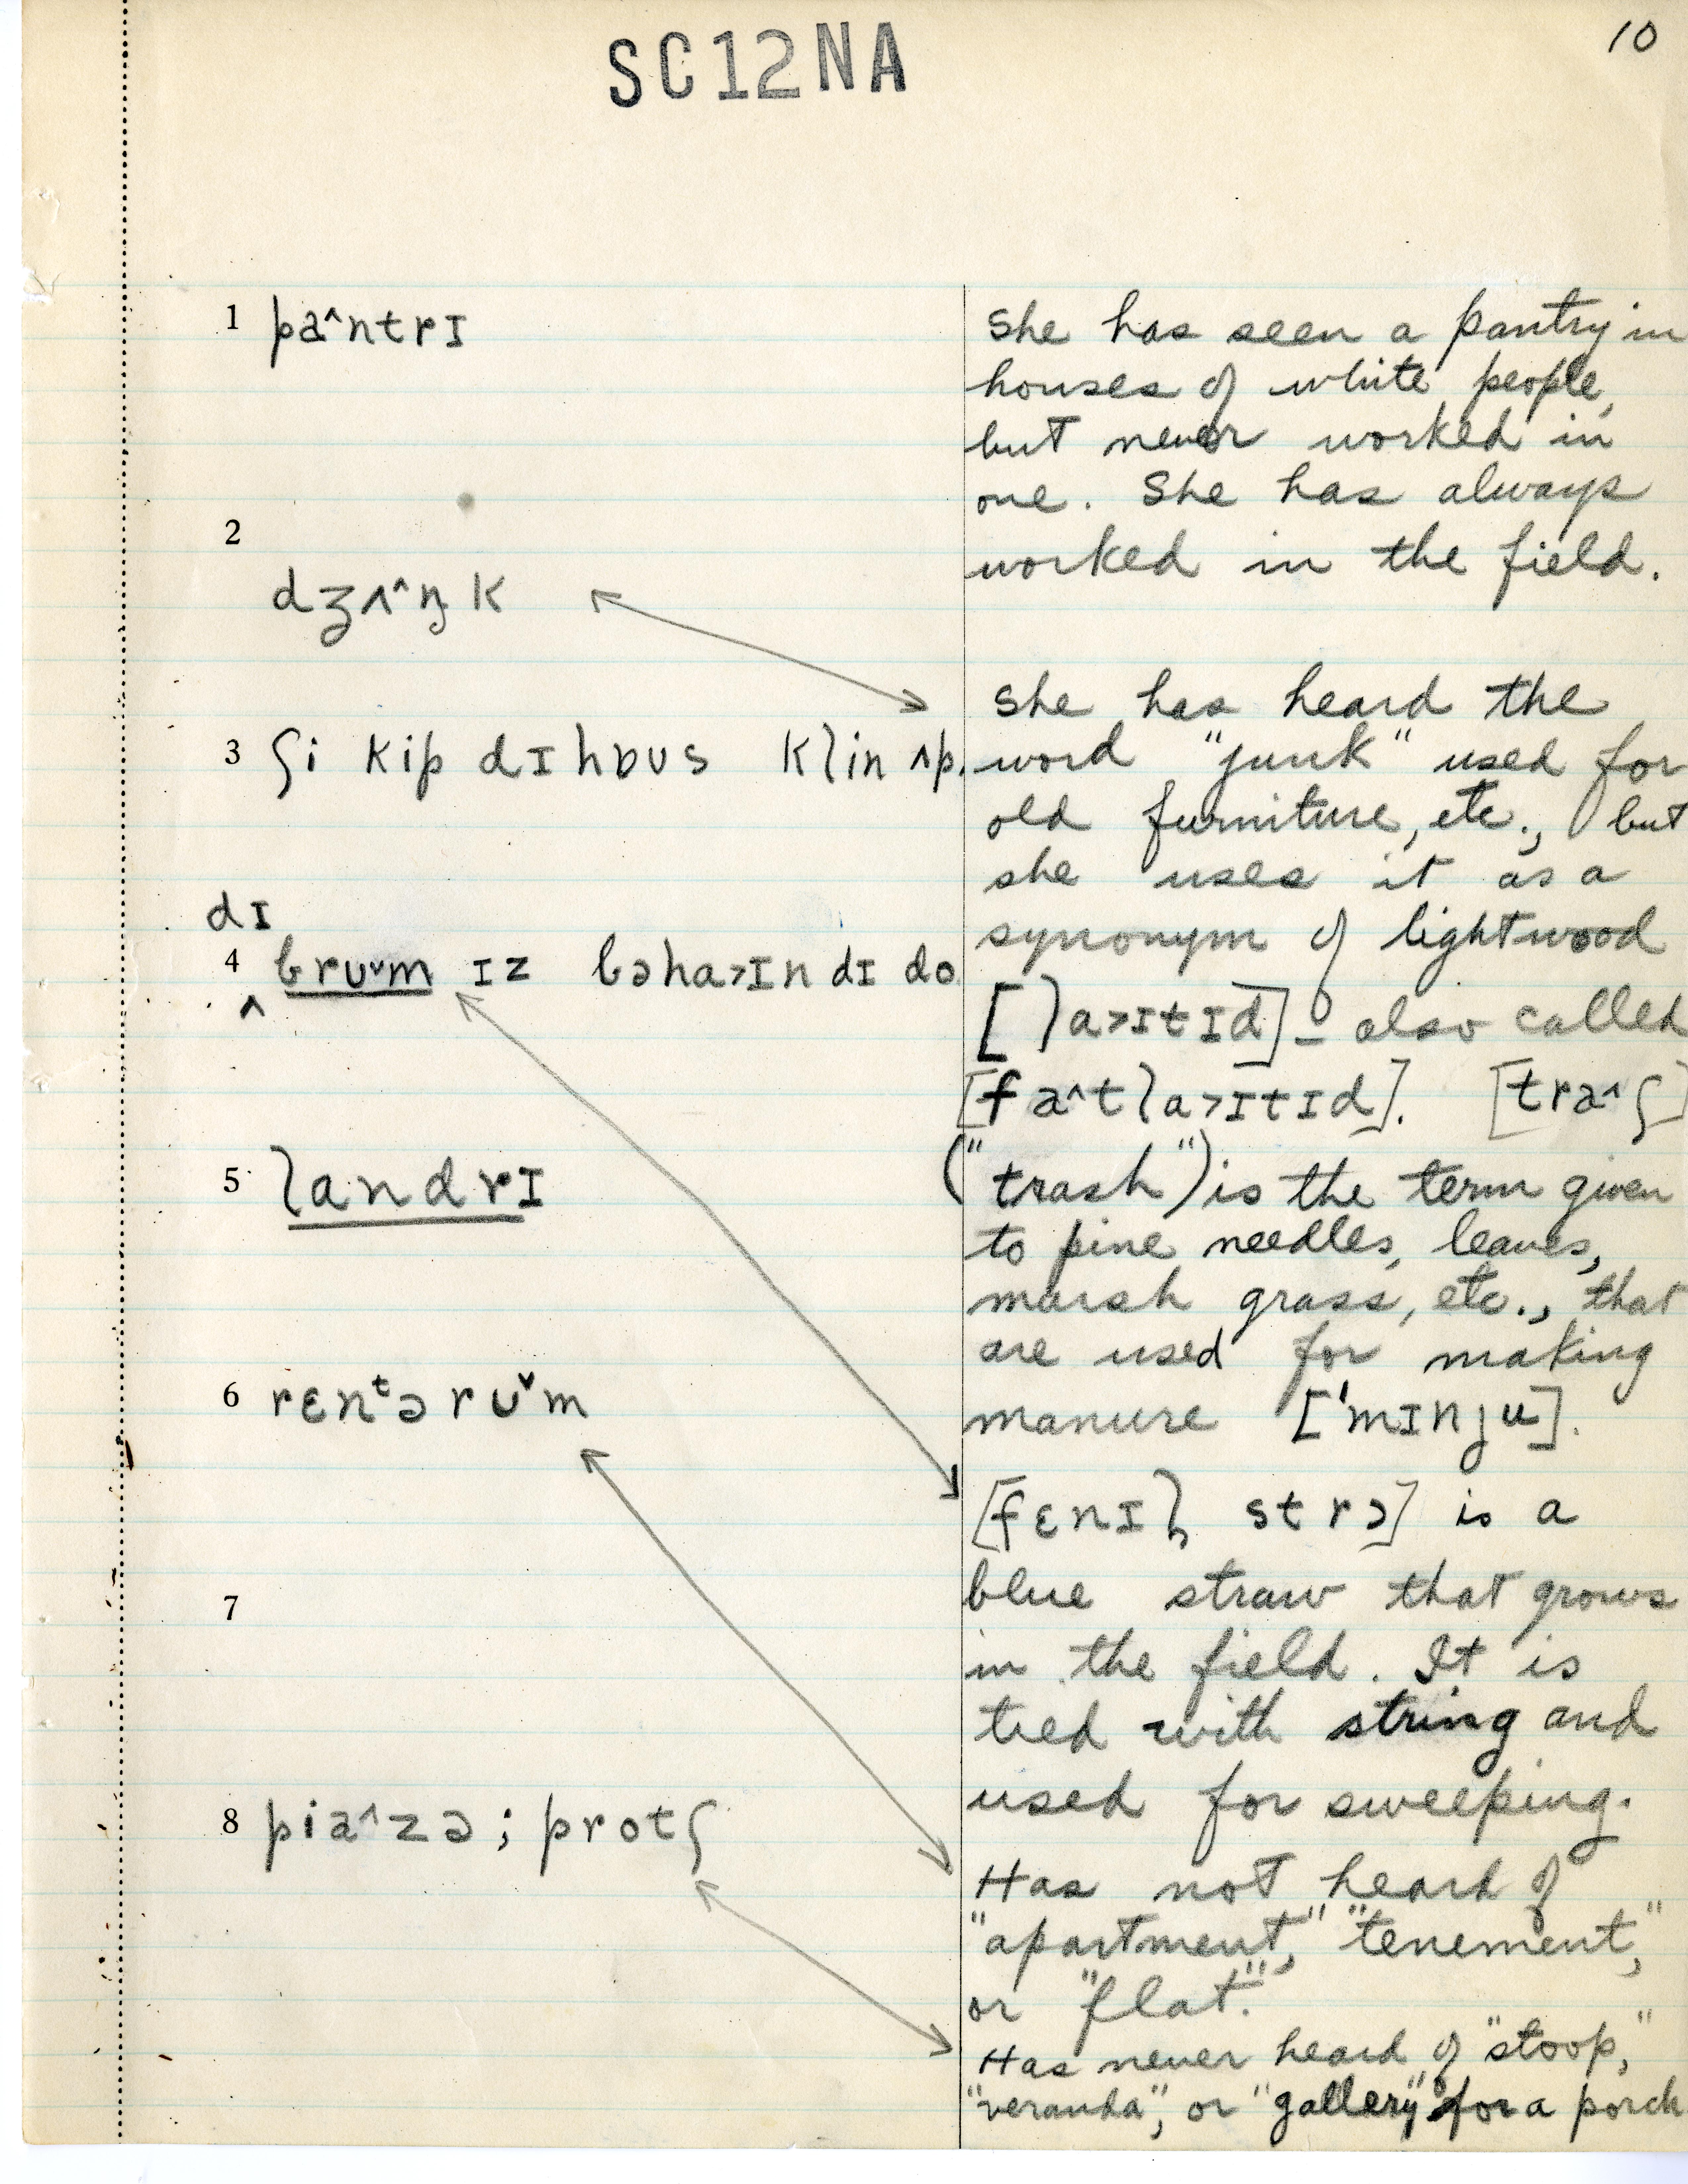 SC12NA
10
1 pa^ntrɪ
2
dʒʌ^ŋk
3 ʃi kip dɪ hɒʊs klin ʌp.
dɪ
4 ɓrʊˇm ɪz ɓəha>ɪn dɪ do
^
5 landrɪ
6 rɛnᵗə rʊˇm
7
8 pia^zə; protʃ
She has seen a pantry in
houses of white people,
but never worked in
one. She has always
worked in the field.
She has heard the
word "junk" used for
old furniture, etc., but
she uses it as a
synonym of lightwood
[la>ɪtɪd] – also called
[fa^tla>ɪtɪd]. [tra^ʃ]
("trash") is the term given
to pine needles, leaves,
marsh grass, etc., that
are used for making
manure ['mɪnɟu].
[fɛnɪl strɔ] is a
blue straw that grows
in the field. It is
tied with string and
used for sweeping.
Has not heard of
"apartment," "tenement,"
or "flat."
Has never heard of "stoop,"
"veranda", or "gallery" for a porch